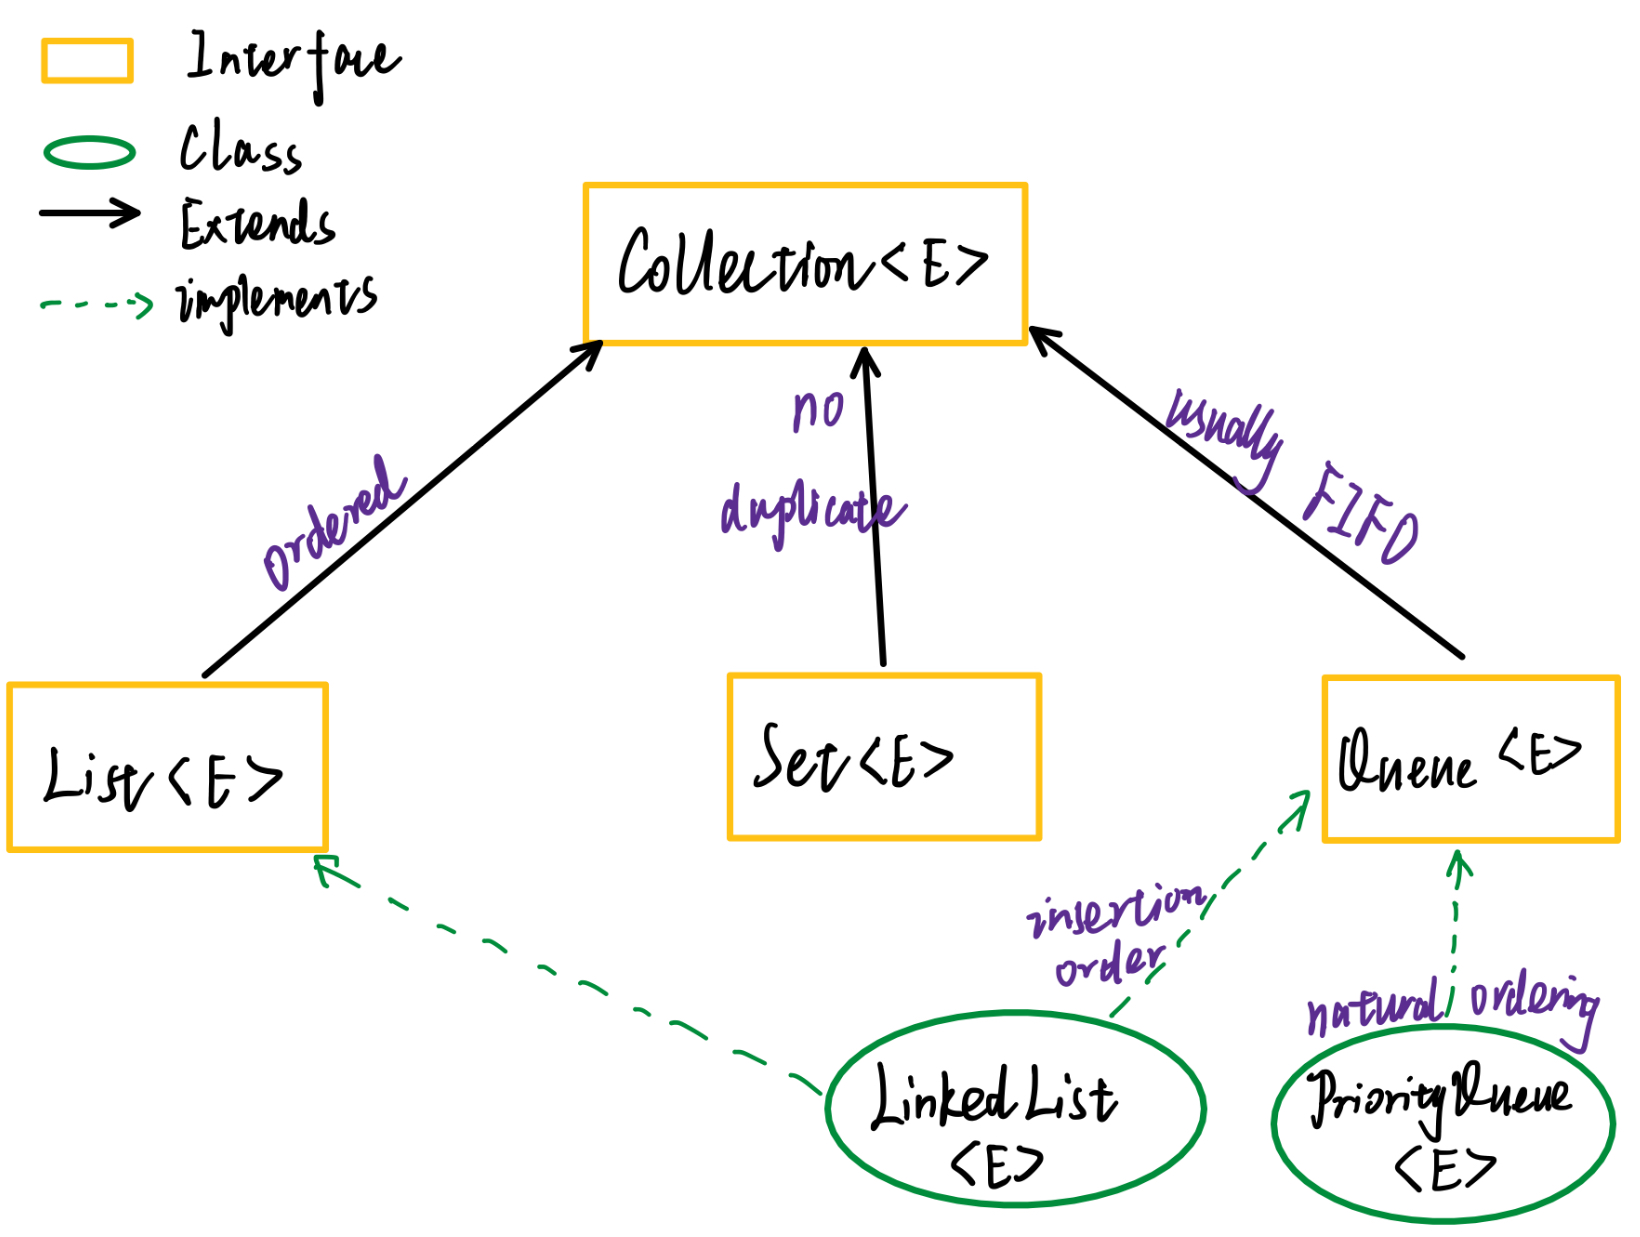 Interface
Class
Extends
implements
Collection<E>
no
duplicate
usually FIFO
ordered
List<E>
Set<E>
Queue <E>
insertion
order
natural ordering
LinkedList
<E>
PriorityQueue
<E>